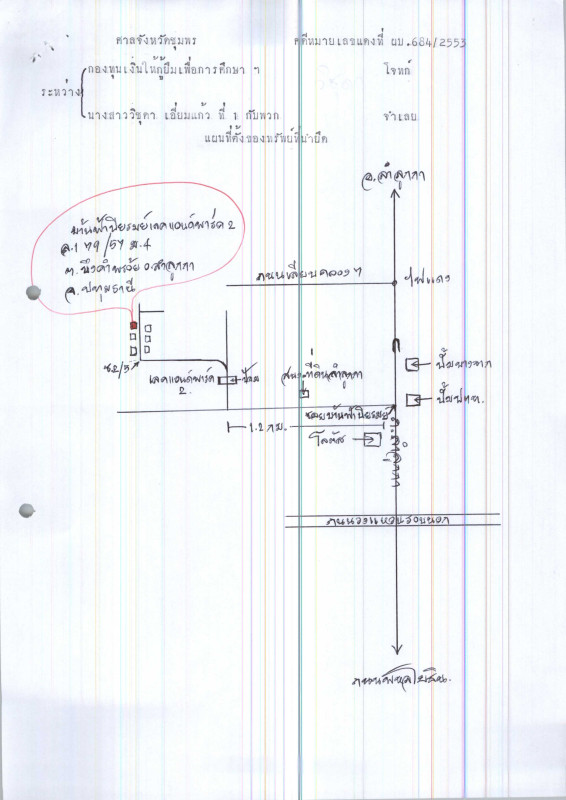 ศาลจังหวัดชุมพร คดีหมายเลขแดงที่ ผบ.684/2553
กองทุนเงินให้กู้ยืมเพื่อการศึกษา ฯ โจทก์
ระหว่าง
นางสาววิชุดา เอี่ยมแก้ว ที่ 1 กับพวก จำเลย
แผนที่ตั้งของทรัพย์ที่นำยึด
อ.ลำลูกกา
บ้านฟ้าปิยรมย์เลคแอนด์พาร์ค 2
ล.179/57 ม.4
ต.บึงคำพร้อย อ.ลำลูกกา
จ.ปทุมธานี
ถนนเลียบคลอง 7 ไฟแดง
ซ2/5
เลคแอนด์พาร์ค 2. ป้อม
สนง.ที่ดินลำลูกกา
ปั๊มบางจาก
ปั๊มปตท.
ซอยบ้านฟ้าปิยรมย์
1.2 กม.
โลตัส
ถ.ลำลูกกา
ถนนวงแหวนรอบนอก
ถนนพหลโยธิน.